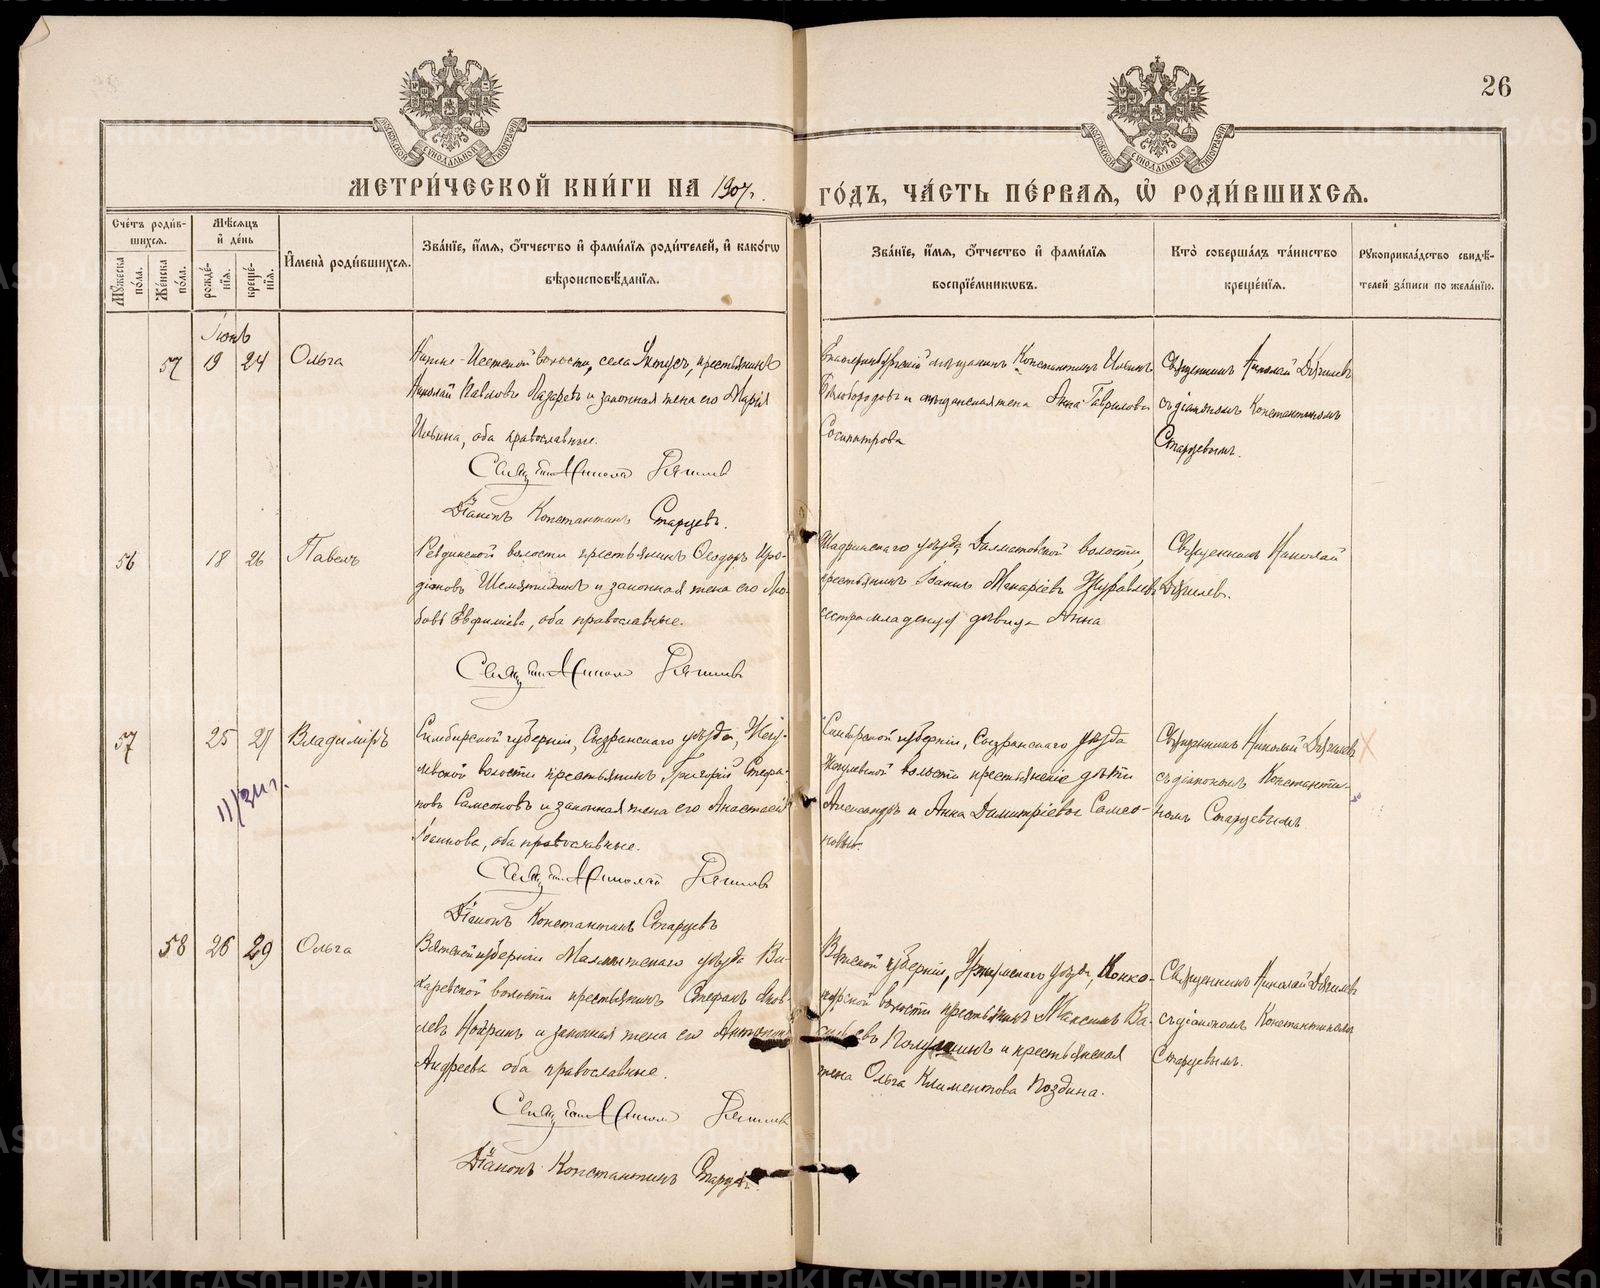 26
МЕТРИ́ЧЕСКОЙ КНИ́ГИ НА 1907 г.
ГО́ДЪ, ЧА́СТЬ ПЕ́РВАЯ, Ѡ РОДИ́ВШИХСЯ.
Сче́тъ роди́в-
шихся.
Мѣ́сяцъ
и де́нь
Мꙋжеска по́ла.
Же́нска по́ла.
рожде́-
нїя.
креще́-
нїя.
Имена̀ роди́вшихся.
Зва́нїе, и́мя, ѻ́тчество и фами́лїя роди́телей, и како́гѡ
вѣроисповѣ́данїя.
Зва́нїе, и́мя, ѻ́тчество и фами́лїя
воспрїе́мникѡвъ.
Кто̀ соверша́лъ та́инство
креще́нїя.
Рꙋкоприкла́дство свидѣ́-
телей за́писи по жела́нїю.
Іюнь
57 19 24 Ольга
Нижне-Исетской волости, села Уктусъ, крестьянинъ
Николай Павловъ Лазаревъ и законная жена его Марія
Ильина, оба православные.
Священникъ Николай Дягилевъ
Діаконъ Константинъ Старцевъ.
Екатеринбургскій мѣщанинъ Константинъ Ильинъ
Бѣлобородовъ и мѣщанская жена Анна Гаврилова
Священникъ Николай Дягилевъ
съ діакономъ Константиномъ
Старцевымъ.
56 18 26 Павелъ
Ревдинской волости крестьянинъ Ѳеодоръ Иро-
діоновъ и законная жена его Лю-
бовь Евфиміева, оба православные.
Священникъ Николай Дягилевъ
Шадринскаго уѣзда, Далматовской волости,
крестьянинъ Іоаннъ Макаріевъ Журавлевъ
сестра младенца дѣвица Анна
Священникъ Николай
Дягилевъ.
57 25 27 Владиміръ
Симбирской губерніи, Сызранскаго уѣзда, Жигу-
левской волости крестьянинъ Григорій Стефа-
новъ Самсоновъ и законная жена его Анастасія
Іоаннова, оба православные.
Священникъ Николай Дягилевъ
Діаконъ Константинъ Старцевъ
Симбирской губерніи, Сызранскаго уѣзда
Жигулевской волости крестьянскіе дѣти
Александръ и Анна Димитріевы Самсо-
новы.
Священникъ Николай Дягилевъ
съ діакономъ Константи-
номъ Старцевымъ
58 26 29 Ольга
Вятской губерніи Малмыжскаго уѣзда
волости крестьянинъ Стефанъ Яков-
левъ и законная жена его Антонина
Андреева оба православные.
Священникъ Николай Дягилевъ
Діаконъ Константинъ Старцевъ.
Вятской губерніи, Уржумскаго уѣзда,
волости крестьянинъ Максимъ Ва-
сильевъ и крестьянская
жена Ольга Климентова Поздина.
Священникъ Николай Дягилевъ
съ діакономъ Константиномъ
Старцевымъ.
METRIKI.GASO-URAL.RU